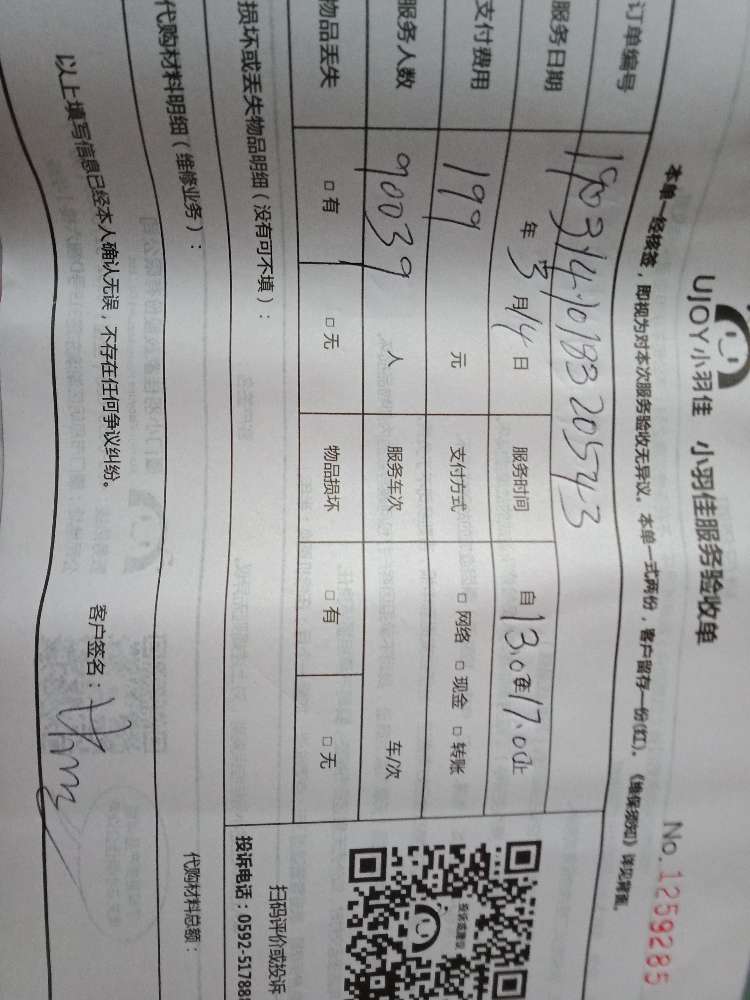 UJOY小羽佳 小羽佳服务验收单
No.1259285
本单一经接签，即视为对本次服务验收无异议。本单一式两份，客户留存一份(红)。《维保须知》详见背面。
订单编号 1903141018320543
服务日期 年 3 月 14 日 服务时间 自 13.0 至 17.0 止
支付费用 199 元 支付方式 □ 网络 □ 现金 □ 转账
服务人数 90039 人 服务车次 车/次
物品丢失 □ 有 □ 无 物品损坏 □ 有 □ 无
损坏或丢失物品明细（没有可不填）：
投诉或建议
扫码评价或投诉
投诉电话：0592-51788
代购材料明细（维修业务）：
代购材料总额：
以上填写信息已经本人确认无误，不存在任何争议纠纷。
客户签名：